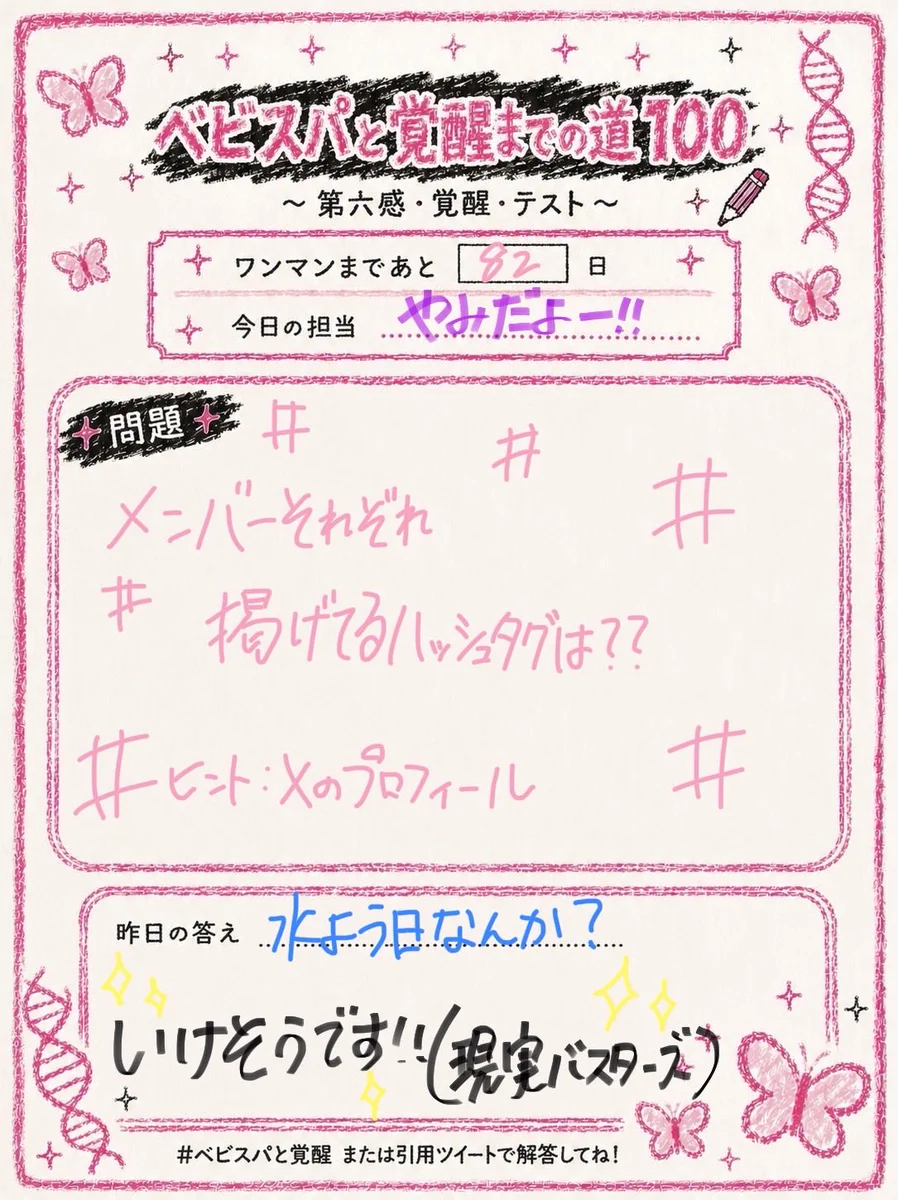 ベビスパと覚醒までの道100
～第六感・覚醒・テスト～
ワンマンまであと 82 日
今日の担当 やみだよー!!
問題
# # #
メンバーそれぞれ
#
掲げてるハッシュタグは??
# ヒント:Xのプロフィール #
昨日の答え 水よう日なんか?
しいけそうです!!(現実バスターズ)
#ベビスパと覚醒 または引用ツイートで解答してね!